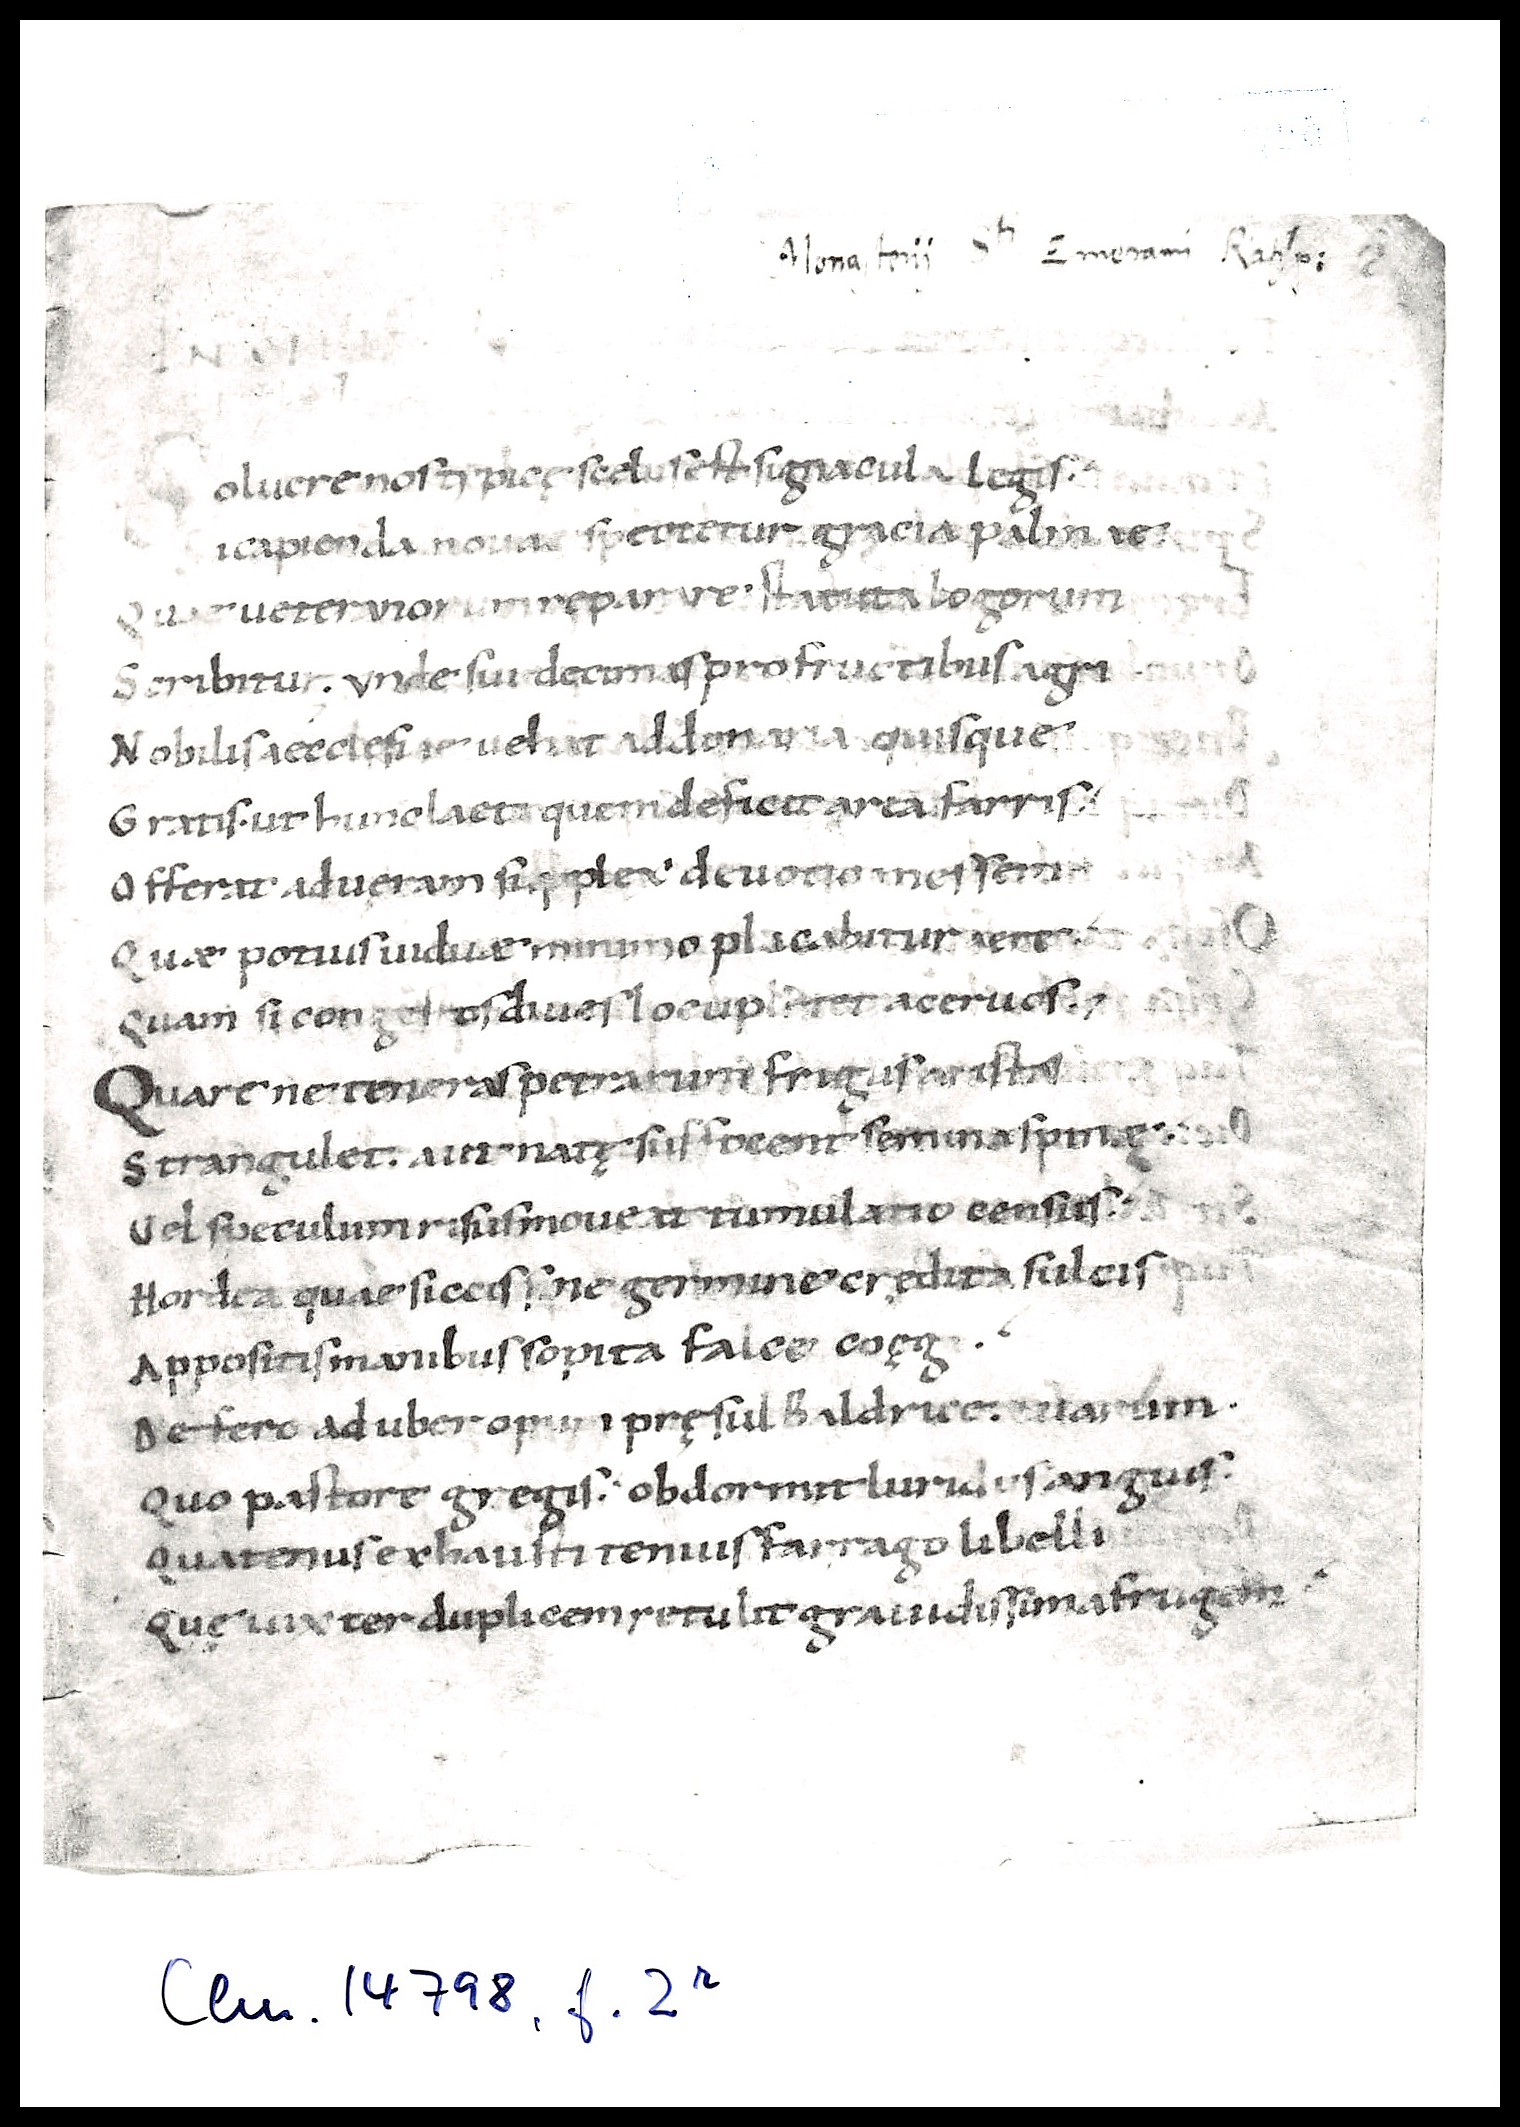 Monasterij Sti Emerami Ratisp:
oluere nos typicę sed uis est signacula legis.
i capienda nouae spectetur gracia palmae.
Quae ueterum reparare statuta
Scribitur. vnde sui decimas pro fructibus agri
Nobilis aecclesiae uehat ad donaria quisque
Gratis. ut hunc laeti quem deficit arca farris.
Offerat ad uęram supplex deuotio messem
Quae potius uiduae minimo placabitur aere.
Quam si congestos diues locupletet aceruos.
Quare ne teneras petrarum frigus aristas
Strangulet. aut natę suffocent semina spinę.
Vel speculum risus moueat tumulatio census.
Hordea quae siccis sine germine crędita sulcis
Appositis manibus sopita falce coęgi.
Defero ad uber opum pręsul Baldrice tuarum.
Quo pastore gregis. obdormit luridus anguis.
Quatenus exhausti tenuis farrago libelli
Quę uix ter duplicem retulit grauidissima frugem
Clm. 14798, f. 2r